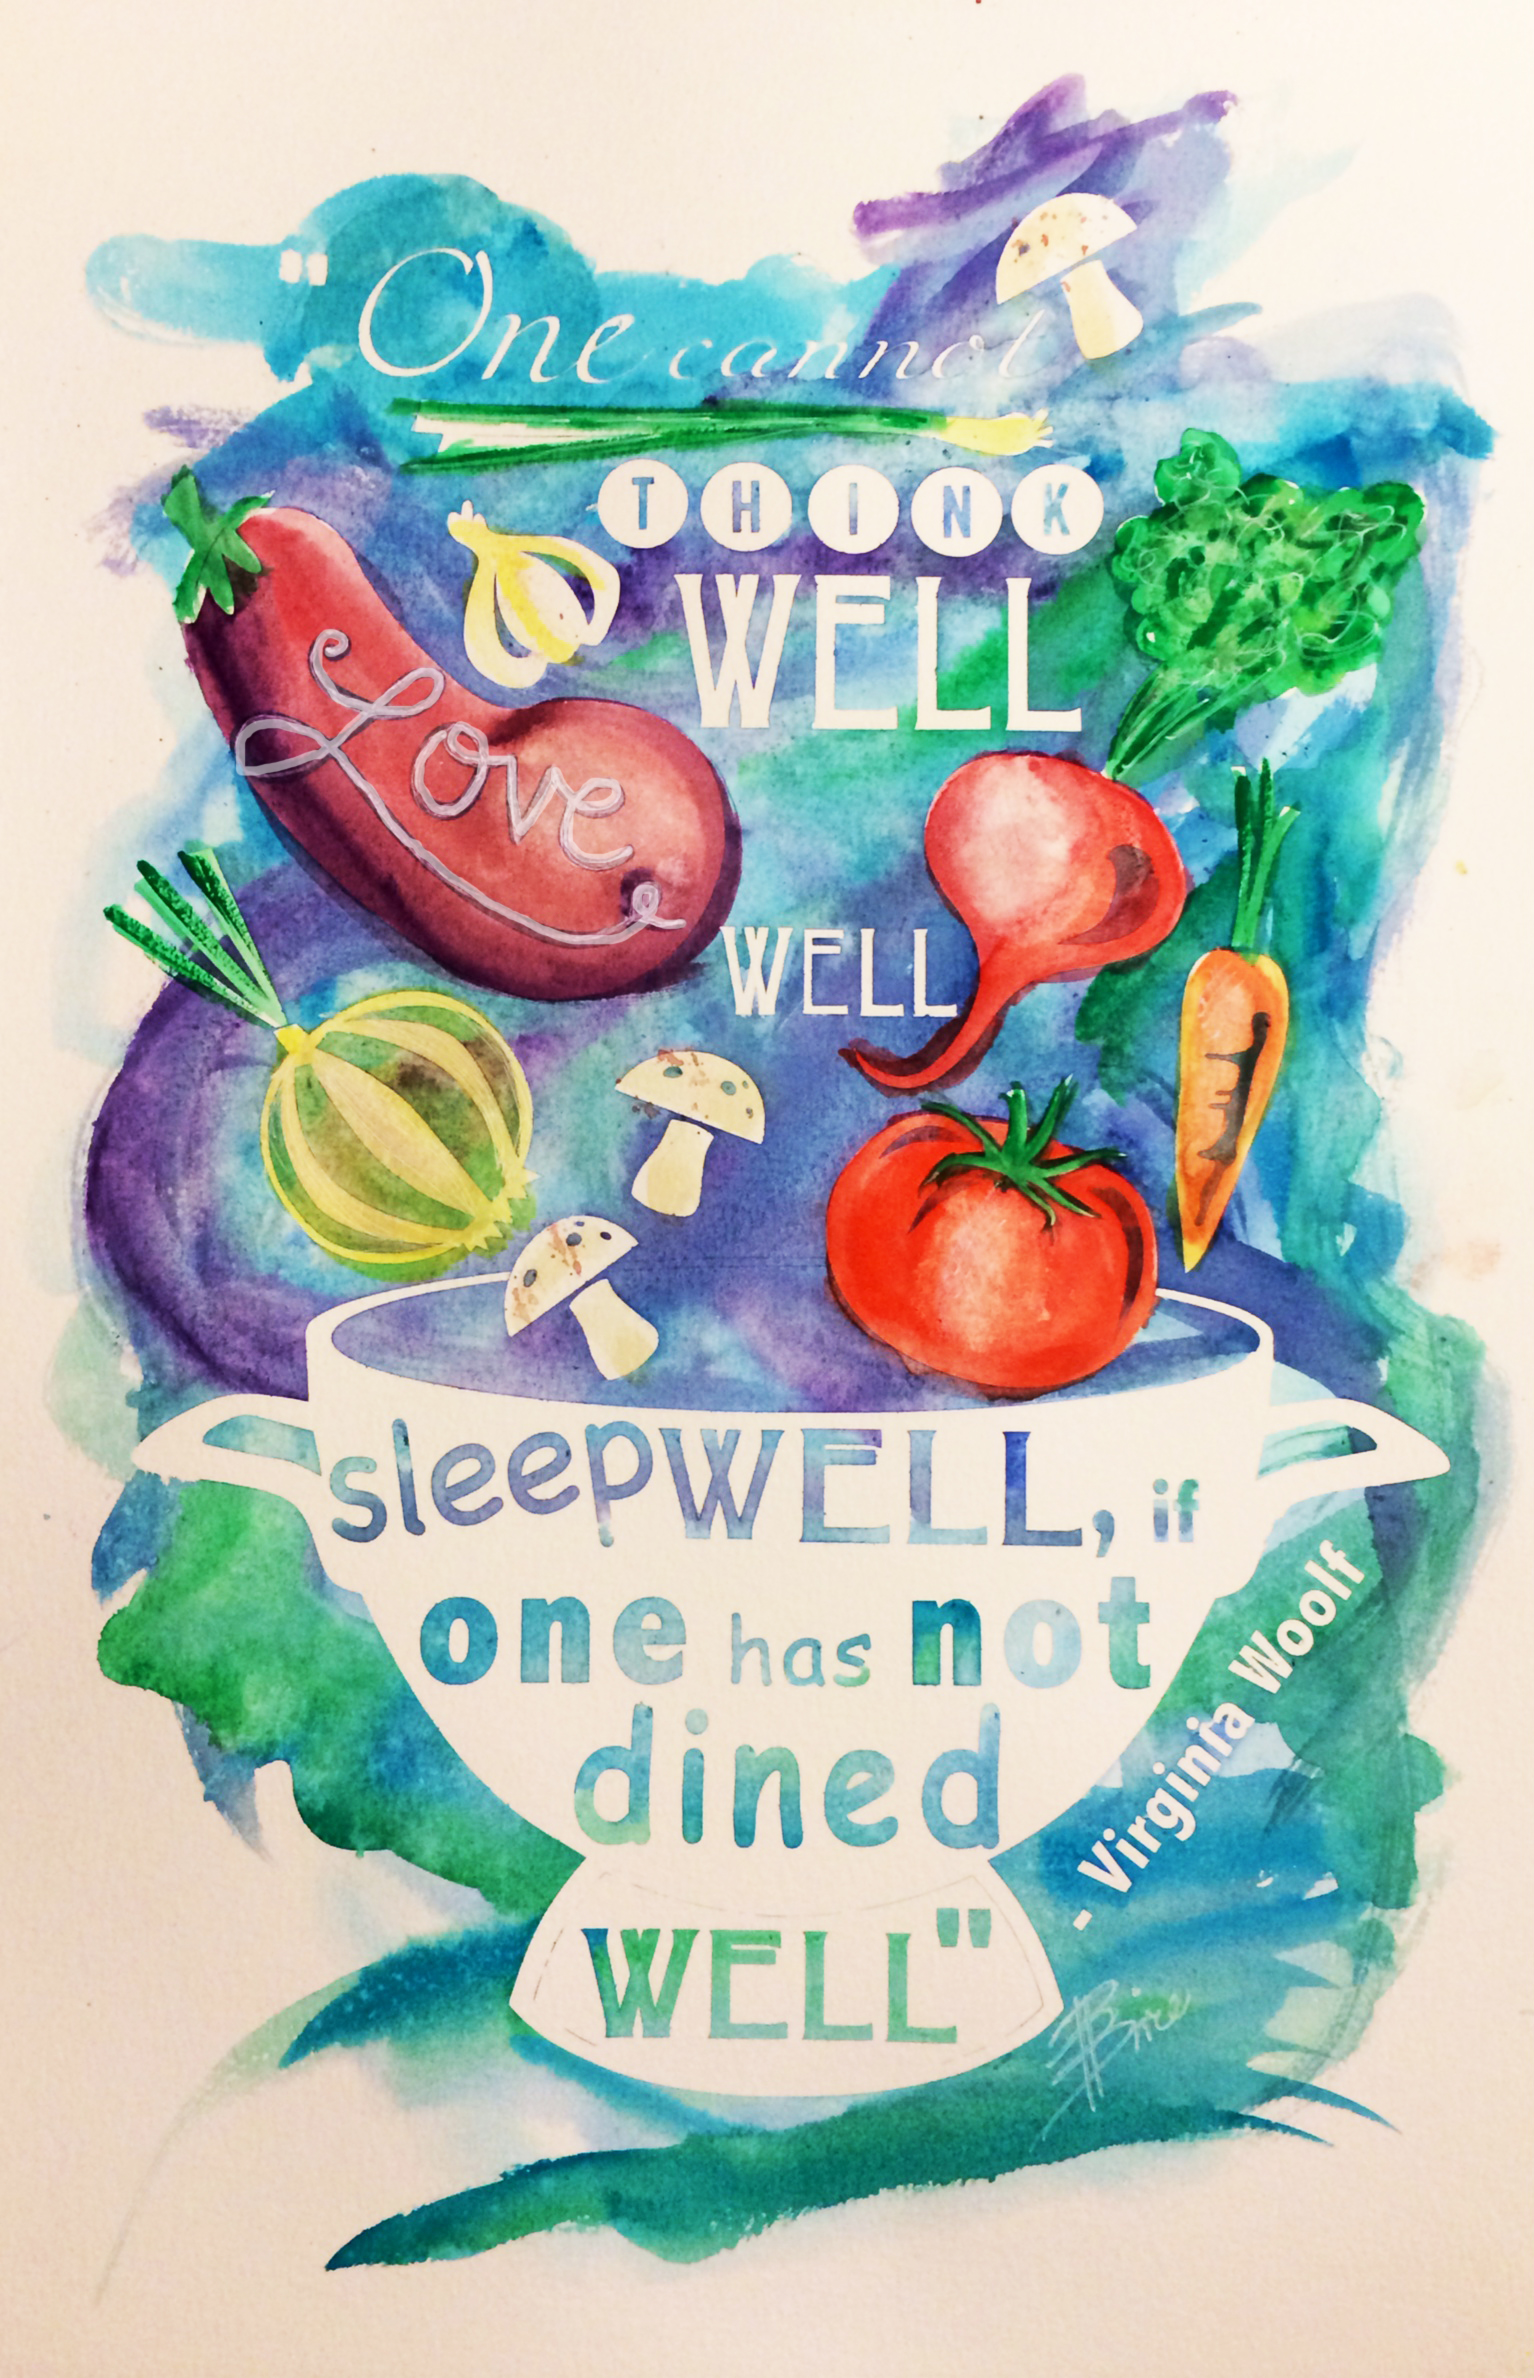 "One cannot
THINK
WELL
Love
WELL
sleepWELL, if
one has not
dined
WELL"
- Virginia Woolf